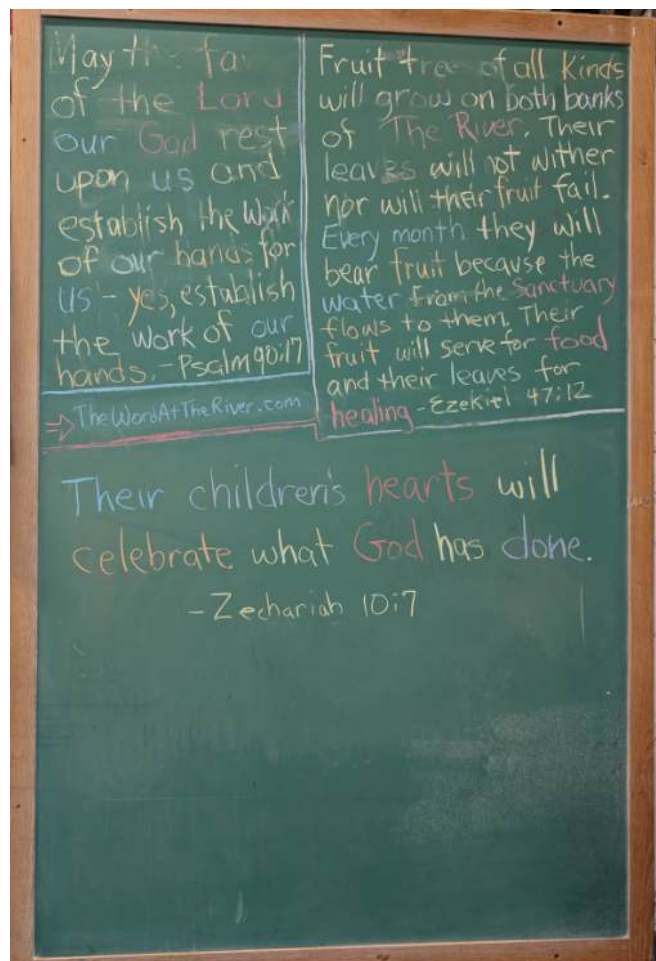 May the fa
of the Lord
our God rest
upon us and
establish the work
of our hands for
us - yes, establish
the work of our
hands. - Psalm 90:17
Fruit trees of all kinds
will grow on both banks
of The River. Their
leaves will not wither
nor will their fruit fail.
Every month they will
bear fruit because the
water from the Sanctuary
flows to them. Their
fruit will serve for food
and their leaves for
healing - Ezekiel 47:12
TheWordAtTheRiver.com
Their children's hearts will
celebrate what God has done.
- Zechariah 10:7